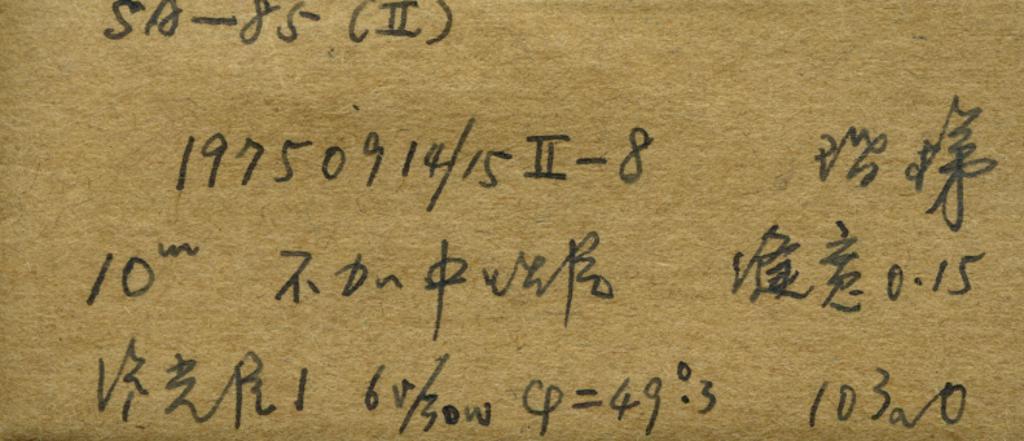 SA-85 (II)
19750914/15 II-8 阶梯
10ᵐ 不加中性 0.15
光 1 6V/30W φ=49°.3 103a0